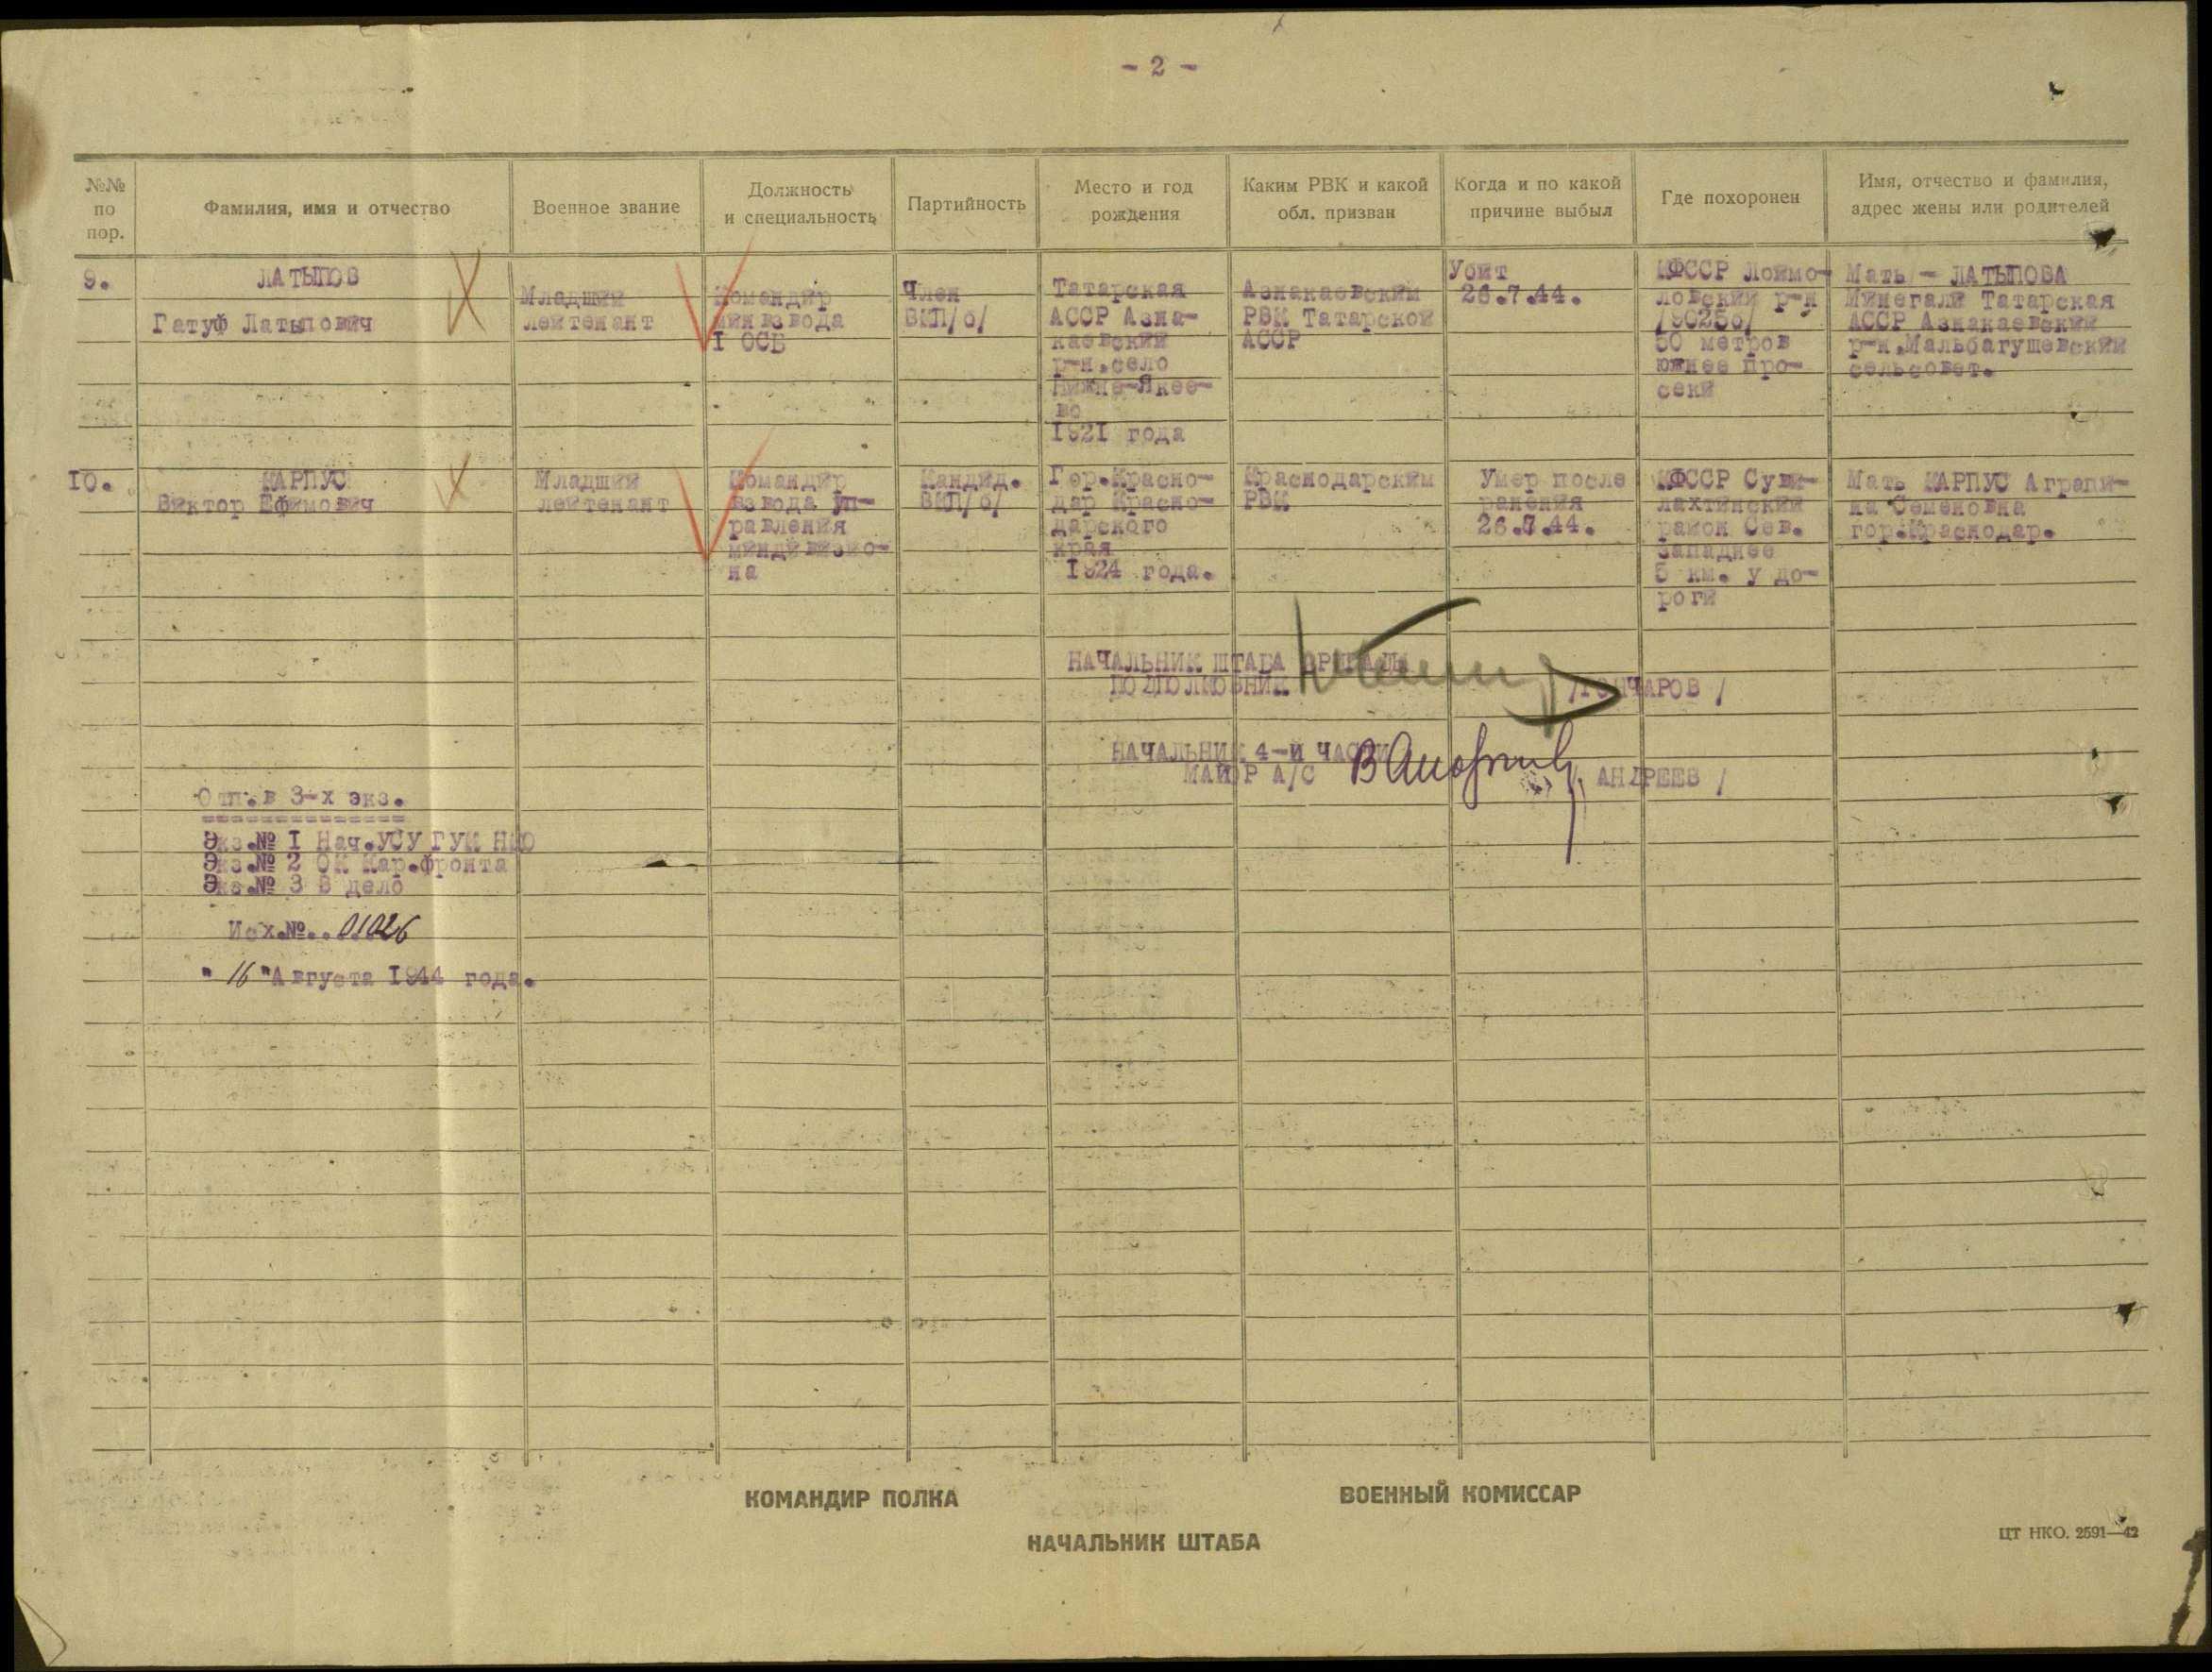 - 2 -
№№ по пор.
Фамилия, имя и отчество
Военное звание
Должность и специальность
Партийность
Место и год рождения
Каким РВК и какой обл. призван
Когда и по какой причине выбыл
Где похоронен
Имя, отчество и фамилия, адрес жены или родителей
9.
ЛАТЫПОВ
Гатуф Латыпович
Младший
лейтенант
Командир
минвзвода
I ОСБ
Член
ВКП/б/
Татарская
АССР Азна-
каевский
р-н.село
Нижне-Якее-
во
1921 года
Азнакаевским
РВК Татарской
АССР
Убит
26.7.44.
КФССР Лоймо-
ловский р-н
/9025б/
50 метров
южнее про-
секи
Мать - ЛАТЫПОВА
Минегали Татарская
АССР Азнакаевский
р-н.Мальбагушевский
сельсовет.
10.
КАРПУС
Виктор Ефимович
Младший
лейтенант
Командир
взвода уп-
равления
миндивизио-
на
Кандид.
ВКП/б/
Гор.Красно-
дар Красно-
дарского
края
1924 года.
Краснодарским
РВК
Умер после
ранения
26.7.44.
КФССР Суви-
лахтинский
район Сев.
западнее
5 км. у до-
роги
Мать КАРПУС Аграпи-
на Семеновна
гор.Краснодар.
НАЧАЛЬНИК ШТАБА БРИГАДЫ
ПОДПОЛКОВНИК
/ГОНЧАРОВ /
НАЧАЛЬНИК 4-й ЧАСТИ
МАЙОР А/С
АНДРЕЕВ /
Отп.в 3-х экз.
==============
Экз.№ I Нач.УСУ ГУК НКО
Экз.№ 2 ОК Кар.фронта
Экз.№ 3 В дело
Исх.№..01026
" 16 "Августа 1944 года.
КОМАНДИР ПОЛКА
ВОЕННЫЙ КОМИССАР
НАЧАЛЬНИК ШТАБА
ЦТ НКО. 2591—42